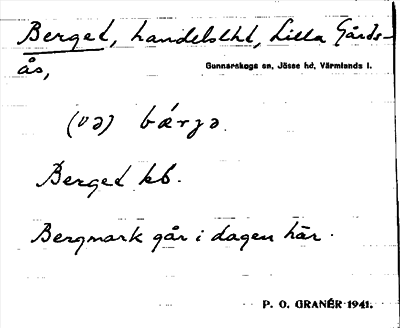 Berget, handelslht, Lilla Gårds-
ås,
Gunnarskogs sn, Jösse hd, Värmlands l.
(va) bárja.
Berget kb.
Bergmark går i dagen här.
P. O. GRANÉR 1941.